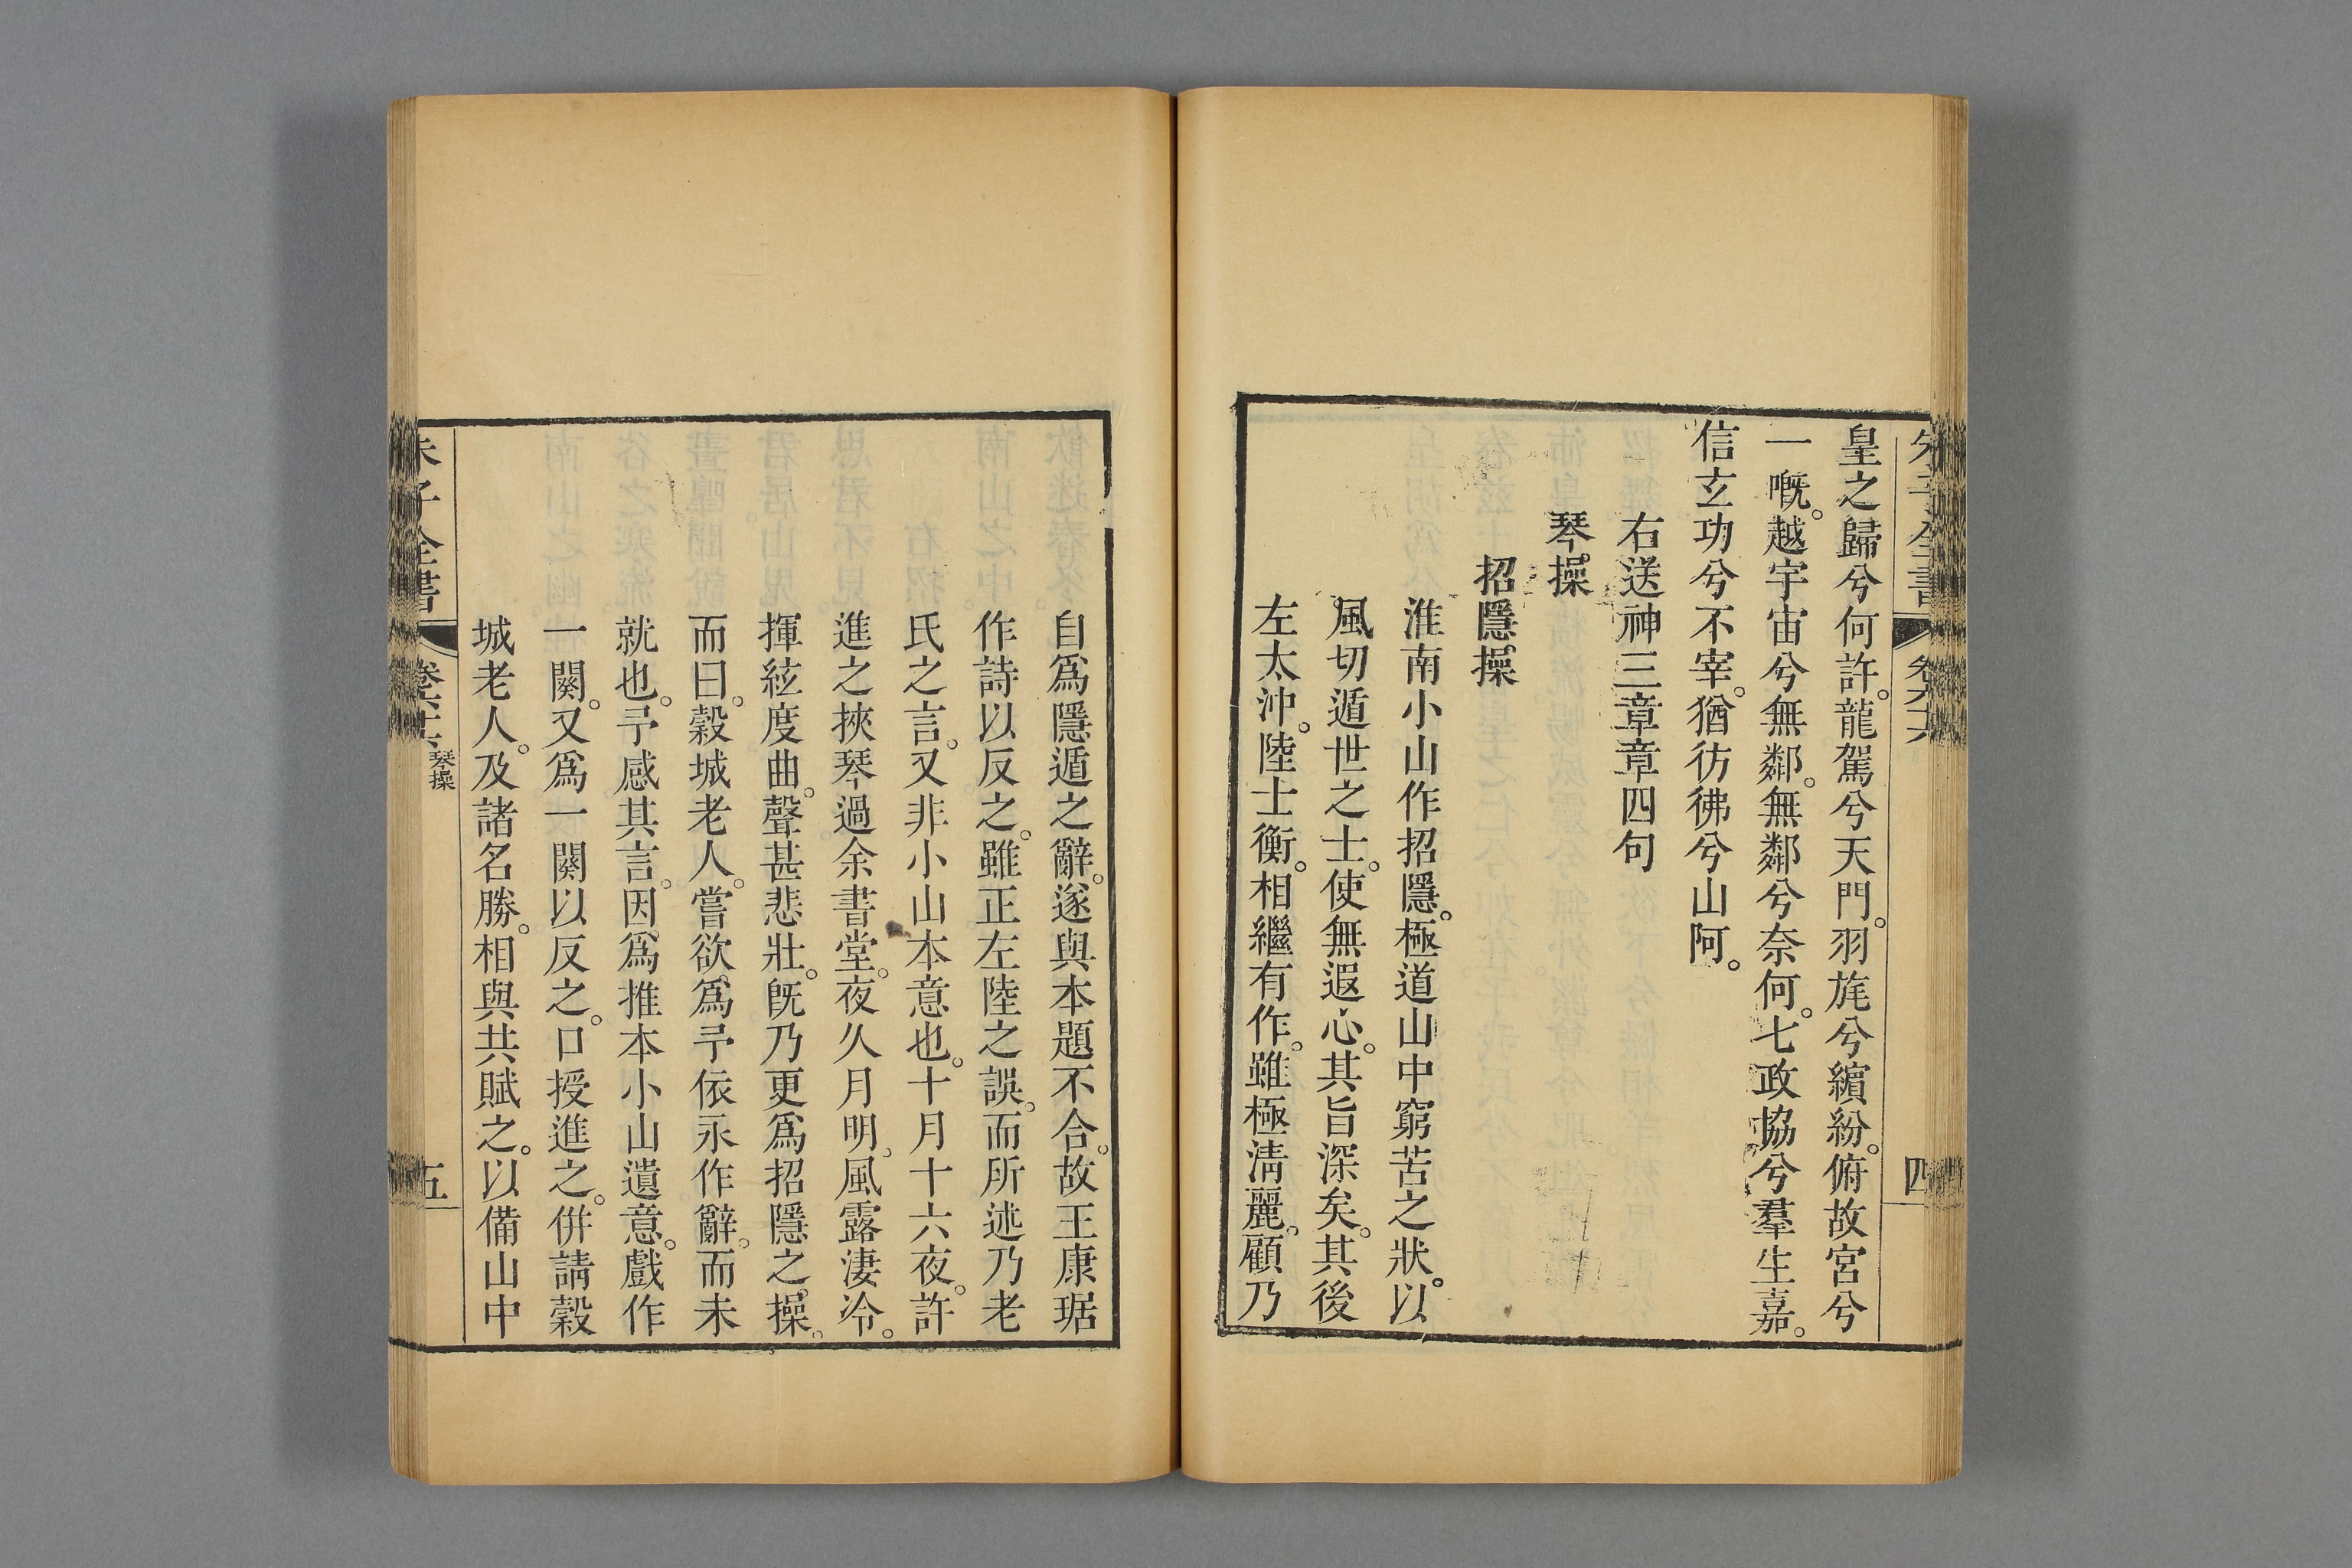 朱子全書 卷六十六 四
皇之歸兮何許。龍駕兮天門。羽旄兮繽紛。俯故宮兮
一嘅。越宇宙兮無鄰。無鄰兮奈何。七政協兮羣生嘉。
信玄功兮不宰。猶彷彿兮山阿。
右送神三章章四句
琴操
招隱操
淮南小山作招隱。極道山中窮苦之狀。以
風切遁世之士。使無遐心。其旨深矣。其後
左太沖。陸士衡。相繼有作。雖極淸麗。顧乃
自爲隱遁之辭。遂與本題不合。故王康琚
作詩以反之。雖正左陸之誤。而所述乃老
氏之言。又非小山本意也。十月十六夜。許
進之挾琴過余書堂。夜久月明。風露淒冷。
揮絃度曲。聲甚悲壯。旣乃更爲招隱之操。
而曰。穀城老人。嘗欲爲予依永作辭。而未
就也。予感其言。因爲推本小山遺意。戲作
一闋。又爲一闋以反之。口授進之。倂請穀
城老人。及諸名勝。相與共賦之。以備山中
朱子全書 卷六十六 琴操 五